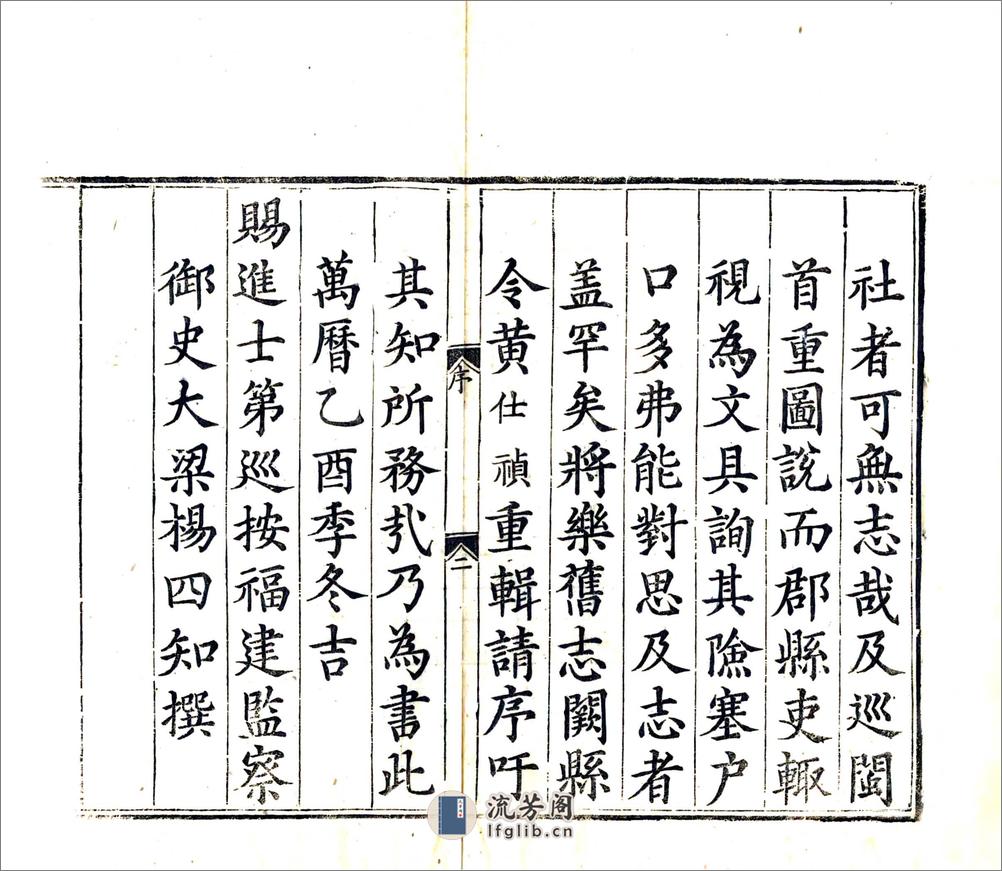 社者可無志哉及巡閩
首重圖說而郡縣吏輙
視為文具詢其險塞户
口多弗能對思及志者
盖罕矣將樂舊志闕縣
令黄仕禎重輯請序吁
序
二
其知所務㢤乃為書此
萬曆乙酉季冬吉
賜進士第巡按福建監察
御史大梁楊四知撰
流芳阁
lfglib.cn